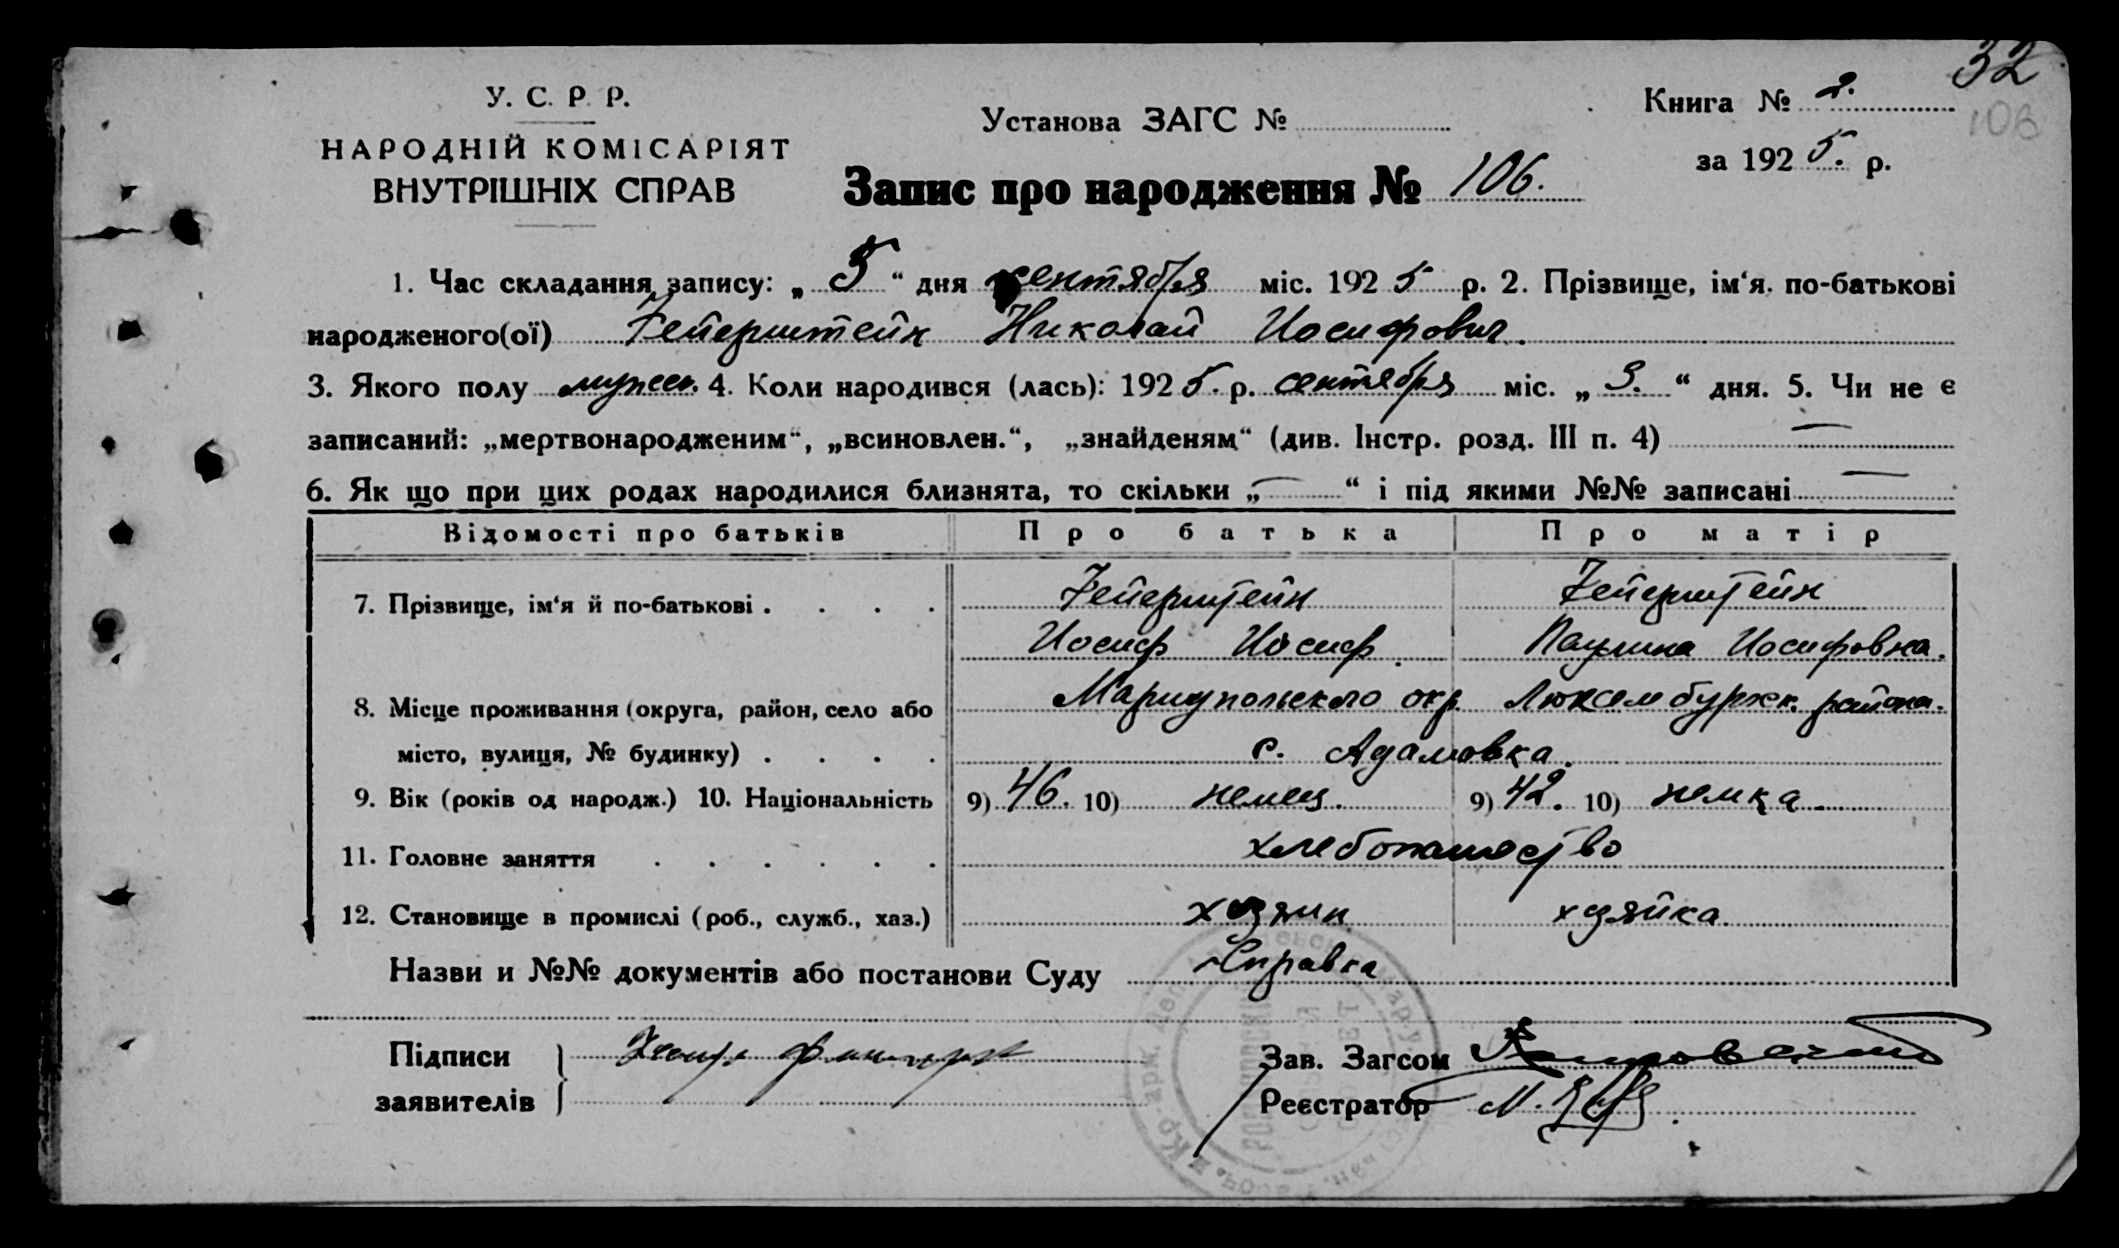 32
У. С. Р. Р.
НАРОДНІЙ КОМІСАРІЯТ
ВНУТРІШНІХ СПРАВ
Установа ЗАГС №
Книга № 2.
108
за 1925. р.
Запис про народження № 106.
1. Час складання запису: „5“ дня сентября міс. 1925 р. 2. Прізвище, ім‘я, по-батькові
народженого(ої) Гейерштейн Николай Иосифович.
3. Якого полу мужск. 4. Коли народився (лась): 1925. р. сентября міс. „3.“ дня. 5. Чи не є
записаний: „мертвонародженим“, „всиновлен.“, „знайденям“ (див. Інстр. розд. III п. 4) —
6. Як що при цих родах народилися близнята, то скільки „—“ і під якими №№ записані —
Відомості про батьків Про батька Про матір
7. Прізвище, ім‘я й по-батькові . . . . Гейерштейн Гейерштейн
Иосиф Иосиф. Паулина Иосифовна.
8. Місце проживання (округа, район, село або Мариупольского окр. Люксембуржск. района.
місто, вулиця, № будинку) . . . . с. Адамовка.
9. Вік (років од народж.) 10. Національність 9) 46. 10) немец. 9) 42. 10) немка.
11. Головне заняття . . . . . . хлебопашество
12. Становище в промислі (роб., служб., хаз.) хозяин хозяйка.
Назви и №№ документів або постанови Суду Справка
Підписи
заявителів
Зав. Загсом
Реєстратор